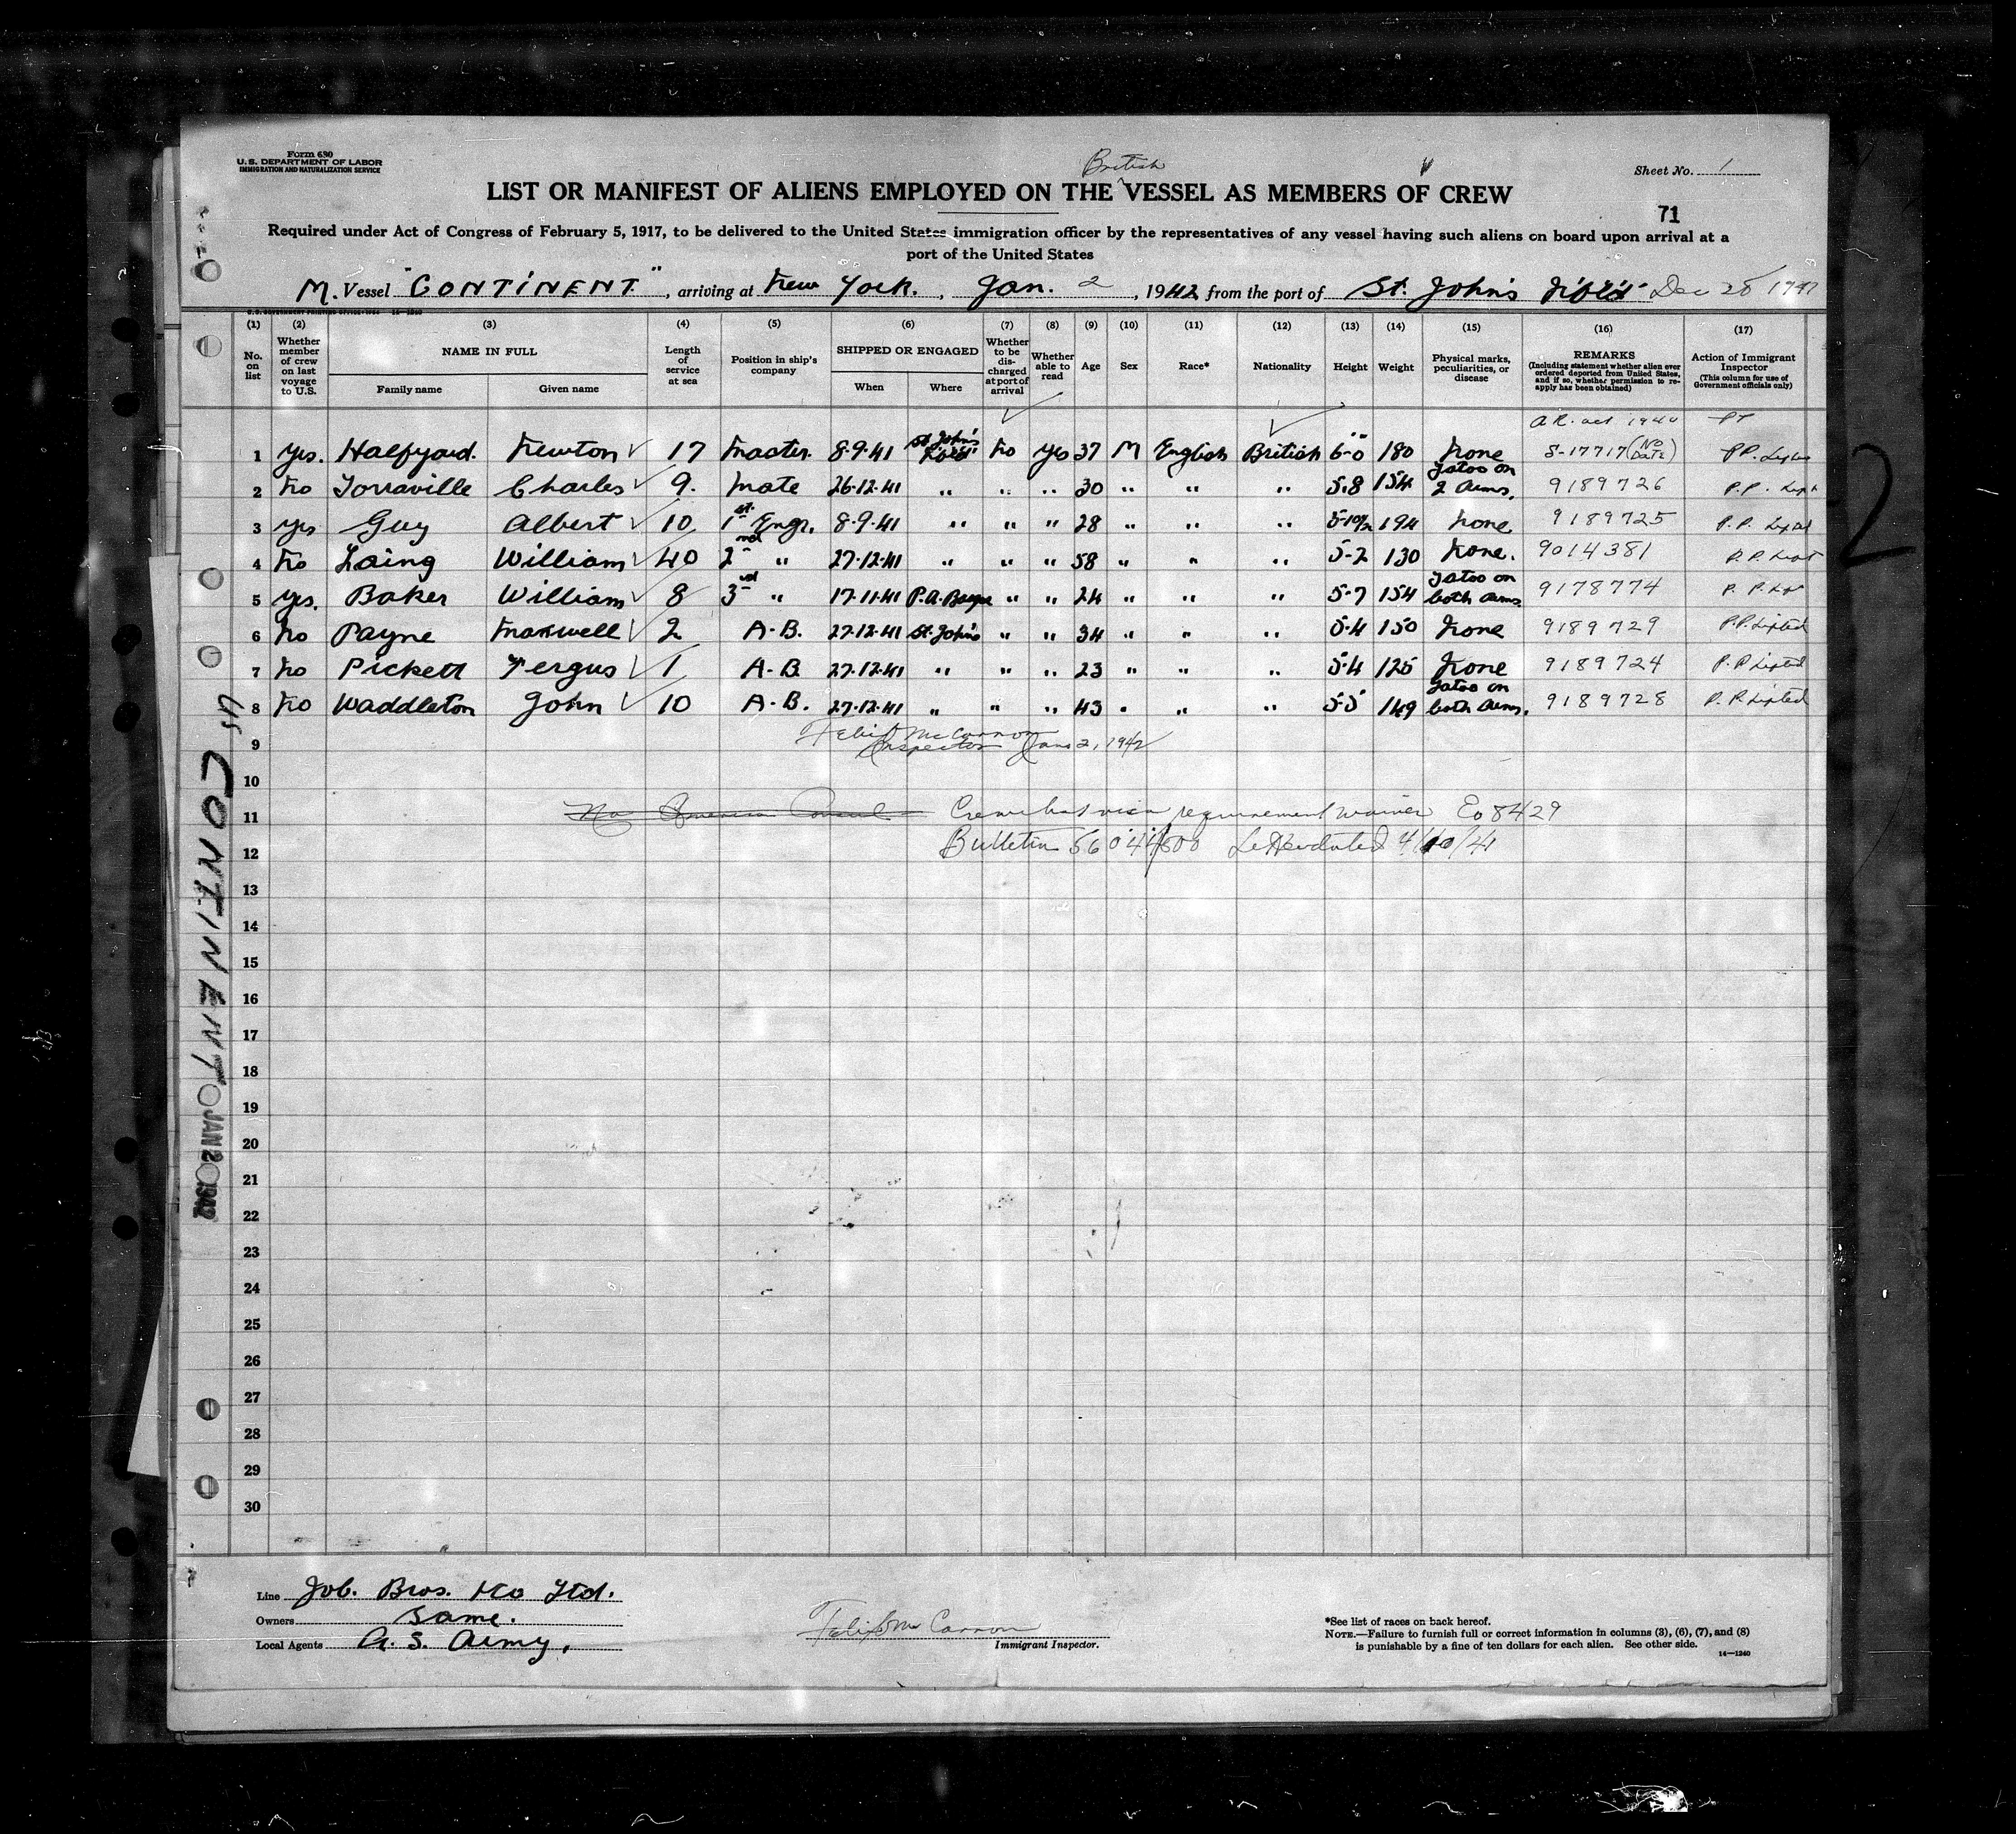 Form 630
U.S. DEPARTMENT OF LABOR
IMMIGRATION AND NATURALIZATION SERVICE
Sheet No. 1
British
LIST OR MANIFEST OF ALIENS EMPLOYED ON THE VESSEL AS MEMBERS OF CREW
71
Required under Act of Congress of February 5, 1917, to be delivered to the United States immigration officer by the representatives of any vessel having such aliens on board upon arrival at a
port of the United States
M. Vessel "CONTINENT", arriving at New York., Jan. 2, 1942 from the port of St. John's Dec 28 1941
(1) (2) (3) (4) (5) (6) (7) (8) (9) (10) (11) (12) (13) (14) (15) (16) (17)
No. on list
Whether member of crew on last voyage to U.S.
NAME IN FULL
Family name Given name
Length of service at sea
Position in ship's company
SHIPPED OR ENGAGED
When Where
Whether to be discharged at port of arrival
Whether able to read
Age
Sex
Race*
Nationality
Height
Weight
Physical marks, peculiarities, or disease
REMARKS
(Including statement whether alien ever ordered deported from United States, and if so, whether permission to reapply has been obtained)
Action of Immigrant Inspector
(This column for use of Government officials only)
A.R. act 1940
1 Yes. Halfyard. Newton 17 Master. 8·9·41 St. John's Nfld No Yes 37 M English British 6-0 180 None S-17717 (NO DATE)
2 No Torraville Charles 9. Mate 26·12·41 " " " 30 " " " 5·8 154 Tatoo on 2 Arms. 9189726
3 Yes Guy Albert 10 1st Engr. 8·9·41 " " " 28 " " " 5-10½ 194 None. 9189725
4 No Laing William 40 2nd " 27·12·41 " " " 58 " " " 5-2 130 None. 9014381
5 Yes. Baker William 8 3rd " 17·11·41 P.A. " " 24 " " " 5-7 154 Tatoo on both Arms. 9178774
6 No Payne Maxwell 2 A-B. 27·12·41 St. John's " " 34 " " " 5·4 150 None 9189729 P.P. Lifted
7 No Pickett Fergus 1 A-B. 27·12·41 " " " 23 " " " 5·4 125 None 9189724 P.P. Lifted
8 No Waddleton John 10 A-B. 27·12·41 " " " 43 " " " 5-5 149 Tatoo on both Arms. 9189728 P.P. Lifted
9 McCarron
Inspector Jan 2, 1942
10
11 No American Consul Crew list visa requirement waived Eo 8429
12 Bulletin Letter dated 4/10/41
13
14
15
16
17
18
19
20
21
22
23
24
25
26
27
28
29
30
CONTINENT JAN 2 1942
2
Line Job. Bros. & Co Ltd.
Owners Same.
Local Agents
McCarron
Immigrant Inspector.
*See list of races on back hereof.
NOTE.—Failure to furnish full or correct information in columns (3), (6), (7), and (8)
is punishable by a fine of ten dollars for each alien. See other side.
14—1240